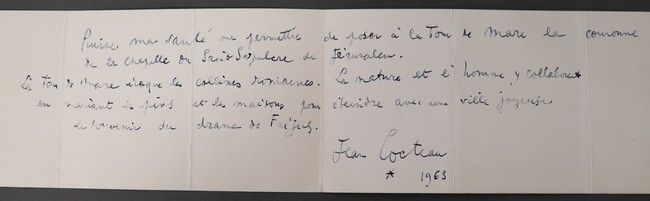 Puisse ma santé me permettre de poser à la Tour de Mare la couronne
de la chapelle du Saint Sépulcre de Jérusalem.
La Tour de Mare évoque les collines romaines. La nature et l'homme y collaborent
en mariant les pins et les maisons pour éteindre avec une ville joyeuse
le souvenir du drame de Fréjus.
Jean Cocteau
* 1963